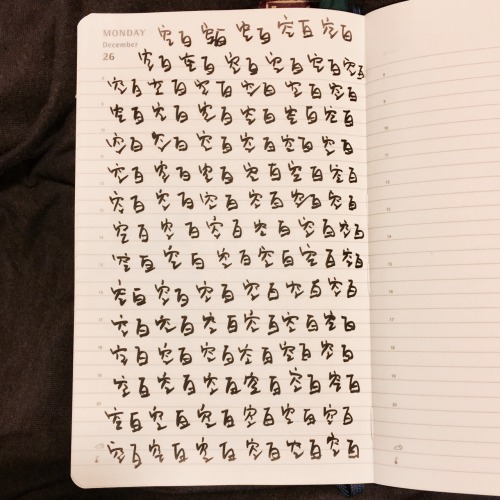 MONDAY
December
26
空白空白空白空白空白
空白空白空白空白空白空白
空白空白空白空白空白空白
空白空白空白空白空白空白
空白空白空白空白空白空白
空白空白空白空白空白空白
空白空白空白空白空白空白
空白空白空白空白空白空白
空白空白空白空白空白空白
空白空白空白空白空白空白
空白空白空白空白空白空白
空白空白空白空白空白空白
空白空白空白空白空白空白
空白空白空白空白空白空白
空白空白空白空白空白空白